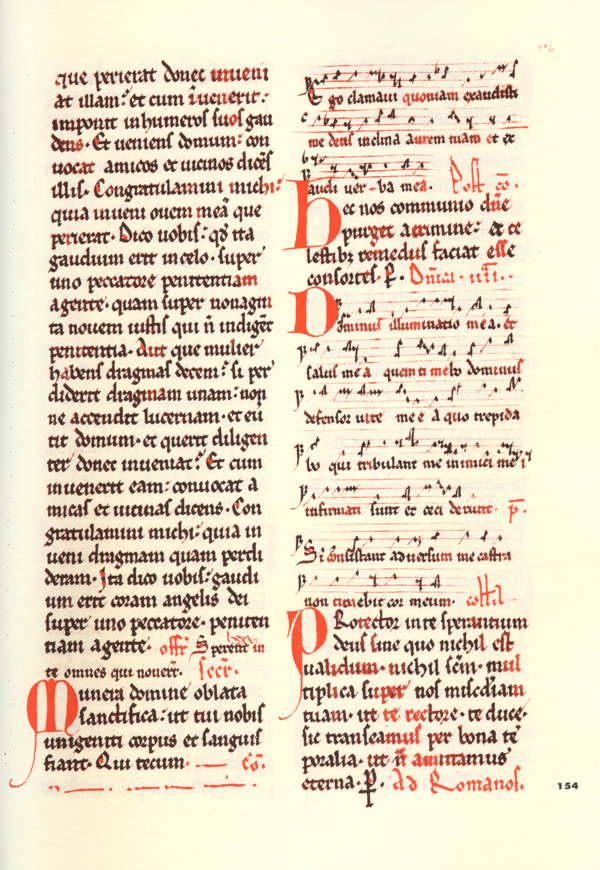 que perierat donec inueni
at illam: et cum i̅uenerit:
imponit in humeros suos gau
dens. Et ueniens domum: con
uocat amicos et uicinos dice̅s
illis. Congratulamini michi:
quia inueni ouem mea̅ que
perierat. Dico uobis: qđ ita
gaudium erit in celo. super
uno peccatore penitentiam
agente. quam super nonagin
ta nouem iustis qui n̅ indige̅t
penitentia. Aut que mulier
habens dragmas decem: si per
diderit dragmam unam: non
ne accendit lucernam. et eu̅
tit domum. et querit diligen
ter donec inueniat: Et cum
inuenerit eam: conuocat a
micas et uicinas dicens. Con
gratulamini michi: quia in
ueni dragmam quam perdi
deram. Ita dico uobis: gaudi
um erit coram angelis dei
super uno peccatore. peniten
tiam agente. offr̅ Sperent in
te omnes qui nouer̅. secr̅.
Munera domine oblata
sanctifica: ut tui nobis
unigeniti corpus et sanguis
fiant. Qui tecum. Co̅.
Ego clamaui quoniam exaudisti
me deus inclina aurem tuam et ex
audi uer-ba mea. Post co̅.
Hec nos communio dn̅e
purget a crimine: et ce
lestibus remediis faciat esse
consortes. P. Dn̅ica. iiii.
Dominus illuminatio mea. et
salus mea quem timebo dominus
defensor uite mee a quo trepida
bo qui tribulant me inimici mei
infirmati sunt et ceci derunt. p̅.
Si consistant aduersum me castra
non timebit cor meum. coll̅
Protector in te sperantium
deus sine quo nichil est
ualidum. nichil sc̅m. mul
tiplica super nos mis̅cdiam
tuam. ut te rectore. te duce.
sic transeamus per bona te̅
poralia. ut n̅ amittamus
eterna. P. Ad Romanos.
154